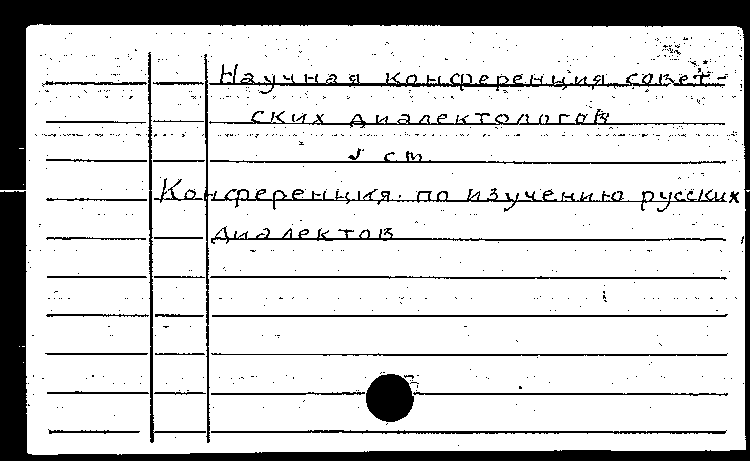 Научная конференция совет-
ских диалектологов
см.
Конференция по изучению русских
диалектов